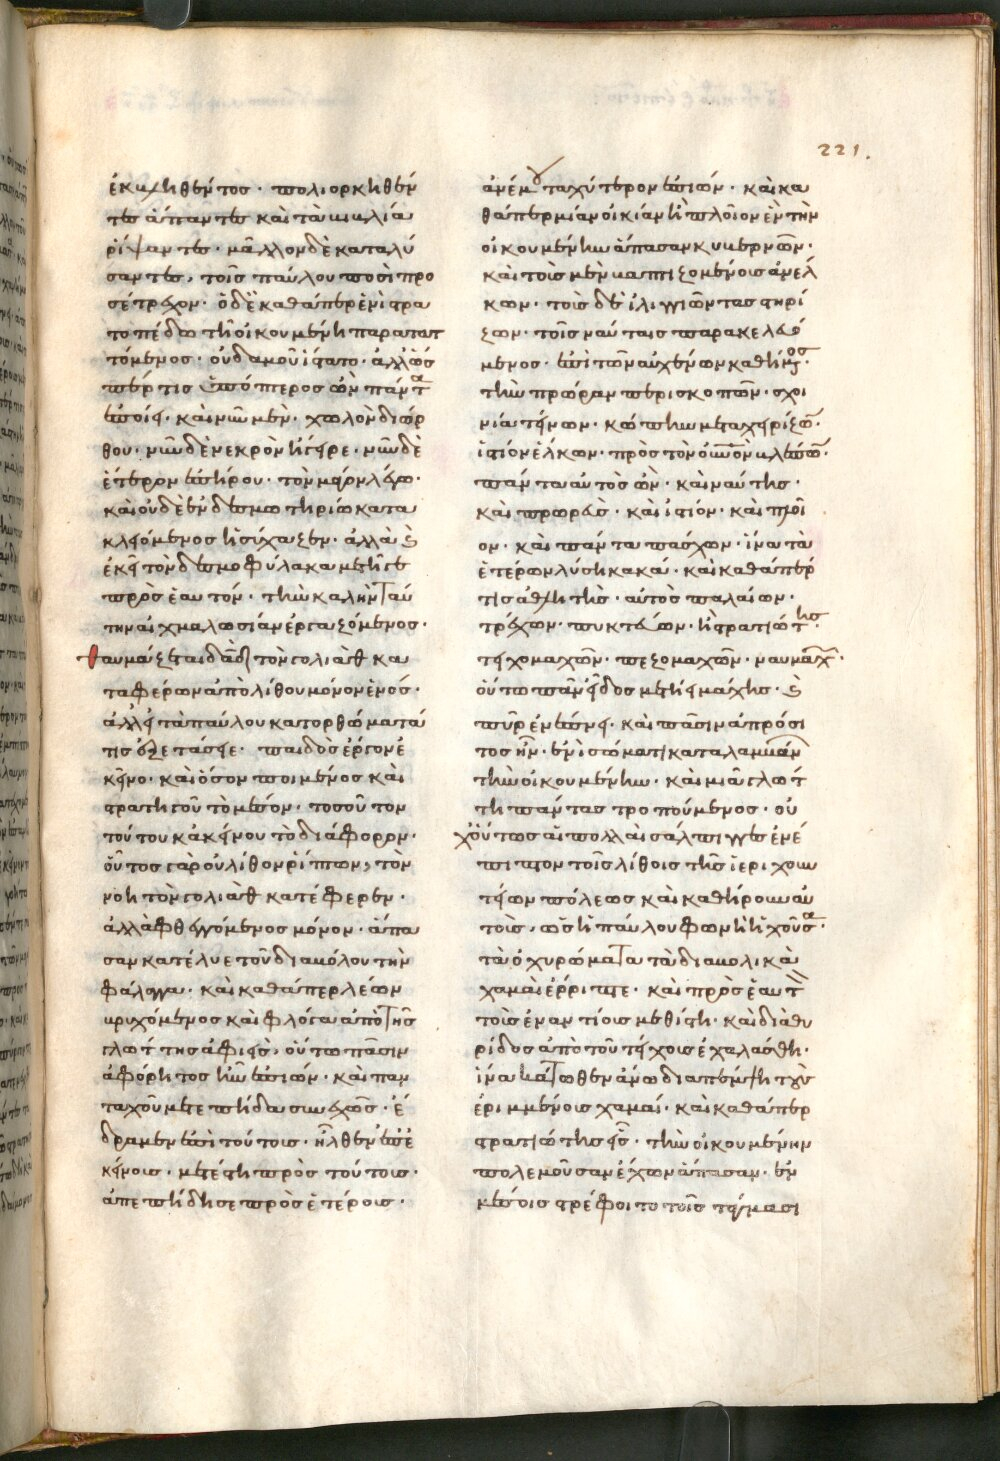 221.
ἐκβληθέντος· πολιορκηθέν
τες ἅπαντες καὶ τὰ βιβλία
ῥίψαντες· μᾶλλον δὲ καταλύ
σαντες, τοῖς παύλου ποσὶ προ
σέτρεχον· ὁ δὲ καθάπερ ἐνὶ στρα
τοπέδω τῆ οἰκουμένη παρατατ
τόμενος· οὐδαμοῦ ἵστατο· ἀλλ' ὡσ
πέρ τις ὑπόπτερος ὢν πάντα
ἐποίει· καὶ νῦν μὲν· χωλὸν διώρ
θου· νῦν δὲ νεκρὸν ἤγειρε· νῦν δὲ
ἕτερον ἐπήρου· τὸν μάγον λέγω·
καὶ οὐδὲ ἐν δεσμωτηρίω κατα
κλειόμενος ἡσύχαζεν· ἀλλὰ καὶ
ἐκεῖ τὸν δεσμοφύλακα μετῆγε
πρὸς ἑαυτόν· τὴν καλὴν ταύ
την αἰχμαλωσίαν ἐργαζόμενος·
θαυμάζεται δᾱδ τὸν γολιὰθ κα
ταφέρων ἀπὸ λίθου μόνον ἑνός·
ἀλλ' εἰ τὰ παύλου κατορθώματά
τις ἐξετάσειε· παιδὸς ἔργον ἐ
κεῖνο· καὶ ὅσον ποιμένος καὶ
στρατηγοῦ τὸ μέσον· τοσοῦτον
τούτου κἀκείνου τὸ διάφορον·
οὗτος γὰρ οὐ λίθον ῥίπτων, τὸν
νοητὸν γολιὰθ κατέφερεν·
ἀλλὰ φθεγγόμενος μόνον· ἅπα
σαν κατέλυε τοῦ διαβόλου τὴν
φάλαγγα· καὶ καθάπερ λέων
βρυχόμενος καὶ φλόγα ἀπὸ τῆς
γλώττης ἀφιεὶς· οὕτω πᾶσιν
ἀφόρητος ἦν ἐπιών· καὶ παν
ταχοῦ μετεπήδα συνεχῶς· ἔ
δραμεν ἐπὶ τούτοις· ἦλθεν ἐπ' ἐ
κείνοις· μετέστη πρὸς τούτοις·
ἀπεπήδησε πρὸς ἑτέροις·
ἀνέμου ταχύτερον ἐπιών· καὶ κα
θάπερ μίαν οἰκίαν ἢ πλοῖον ἓν τὴν
οἰκουμένην ἅπασαν κυβερνῶν·
καὶ τοὺς μὲν βαπτιζομένους ἀνέλ
κων· τοὺς δὲ ἰλιγγιῶντας στηρί
ζων· τοῖς ναύταις παρακελευό
μενος· ἐπὶ τῶν αὐχένων καθήμενος·
τὴν πρώραν περισκοπῶν· σχοι
νία τείνων· κώπην μεταχειρίζων·
ἱστίον ἕλκων· πρὸς τὸν οὐνὸν βλέπων·
πάντα αὐτὸς ὢν· καὶ ναύτης·
καὶ πρωρεὺς· καὶ ἱστίον· καὶ πλοῖ
ον· καὶ πάντα πάσχων· ἵνα τὰ
ἑτέρων λύση κακά· καὶ καθάπερ
τις ἀθλητὴς· αὐτὸς παλαίων·
τρέχων· πυκτεύων· ἢ στρατιώτης·
τειχομαχῶν· πεζομαχῶν· ναυμαχῶν·
οὕτω πᾶν εἶδος μετήει μάχης· καὶ
πῦρ ἐνέπνει· καὶ πᾶσιν ἀπρόσι
τος ἦν· ἑνὶ σώματι καταλαμβάνων
τὴν οἰκουμένην· καὶ μιᾶ γλώτ
τη πάντας τροπούμενος· οὐ
χ οὕτως αἱ πολλαὶ σάλπιγγες ἐνέ
πιπτον τοῖς λίθοις τῆς ἱεριχουν
τίων πόλεως καὶ καθήρουν αὐ
τοὺς· ὡς ἡ παύλου φωνὴ ἠχοῦσα·
τὰ ὀχυρώματα τὰ διαβολικὰ
χαμαὶ ἔρριπτε· καὶ πρὸς ἑαυτὸν
τοὺς ἐναντίους μεθίστη· καὶ διὰ θυ
ρίδος ἀπὸ τοῦ τείχους ἐχαλάσθη·
ἵνα κάτωθεν ἄνω διαπέμψη τοὺς
ἐρριμμένους χαμαί· καὶ καθάπερ
στρατιώτης εἷς· τὴν οἰκουμένην
πολεμοῦσαν ἔχων ἅπασαν· ἐν
μέσοις στρέφοιτο τοῖς τάγμασι